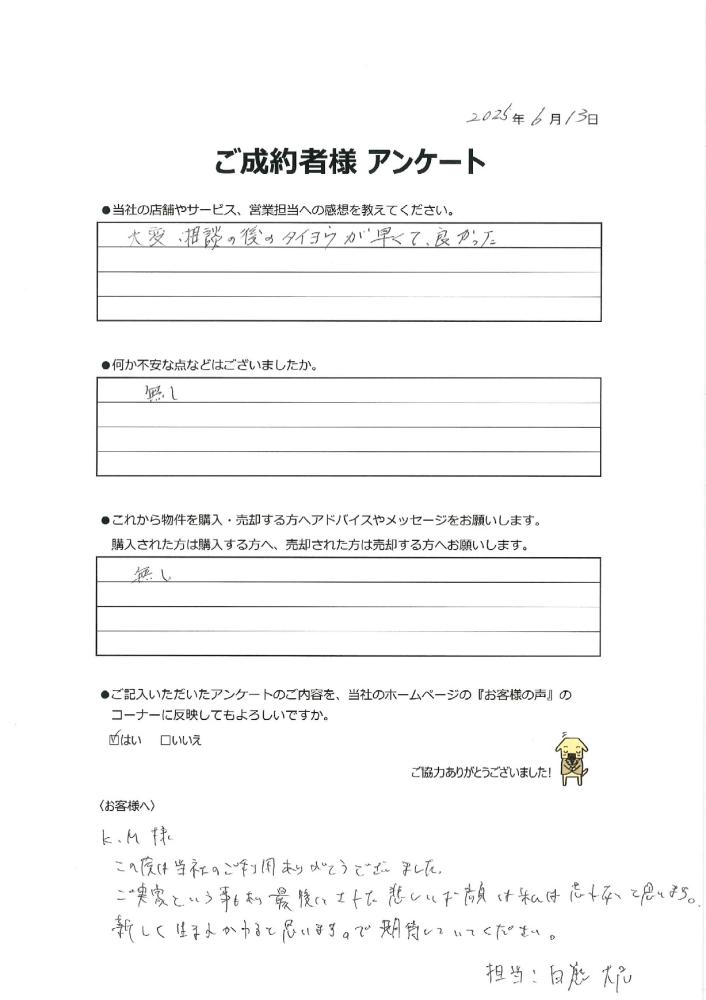 2025年6月13日
ご成約者様 アンケート
●当社の店舗やサービス、営業担当への感想を教えてください。
大変、相談の後のタイヨウが早くて、良かった
●何か不安な点などはございましたか。
無し
●これから物件を購入・売却する方へアドバイスやメッセージをお願いします。
購入された方は購入する方へ、売却された方は売却する方へお願いします。
無し
●ご記入いただいたアンケートのご内容を、当社のホームページの『お客様の声』の
コーナーに反映してもよろしいですか。
☑はい □いいえ
ご協力ありがとうございました!
〈お客様へ〉
K.M 様
この度は当社のご利用ありがとうございました。
ご実家という事もあり最後に 悲しいお顔は私は 思います。
新しく生まれかわると思いますので期待していてください。
担当:白